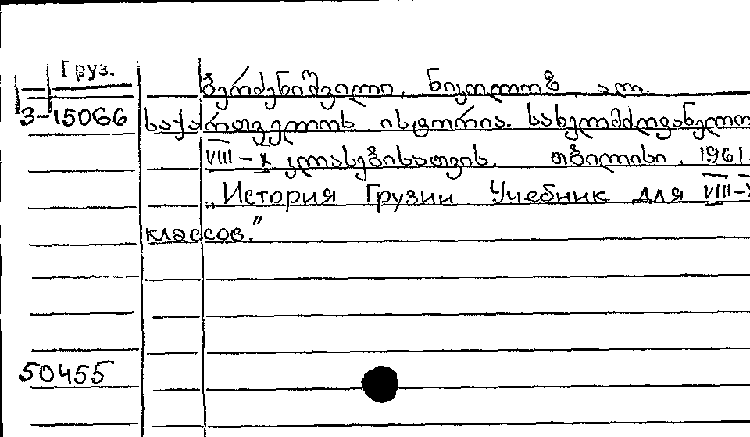 Груз.
ბერძენიშვილი, ნიკოლოზ
3-15066 საქართველოს ისტორია. სახელმძღვანელო
VIII-X კლასებისათვის. თბილისი, 1961.
„История Грузии Учебник для VIII-X
классов."
50455